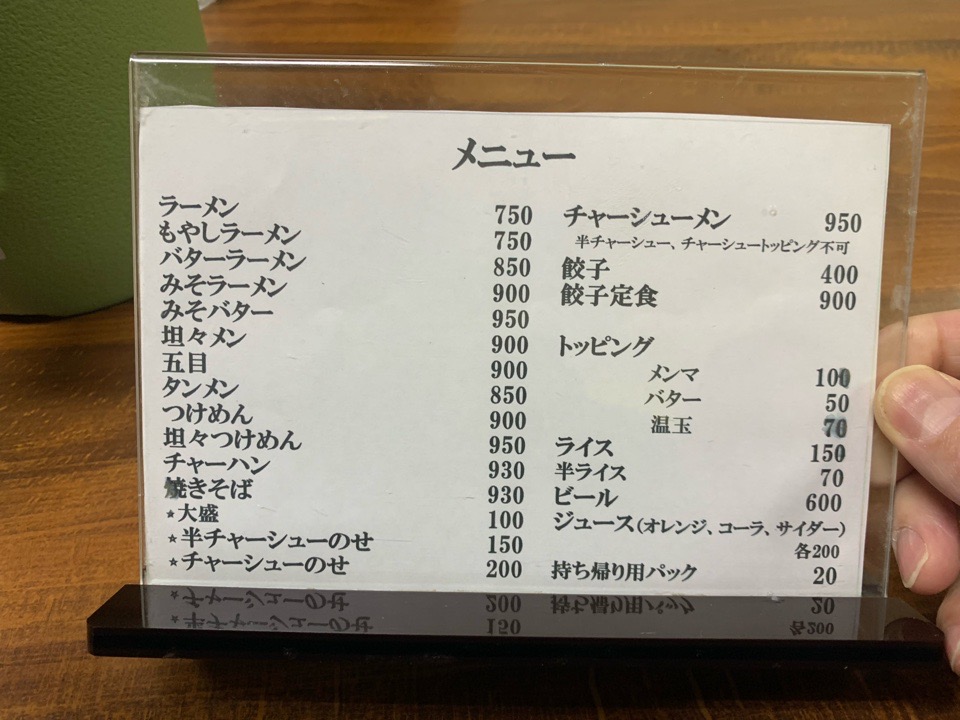 メニュー
ラーメン 750
もやしラーメン 750
バターラーメン 850
みそラーメン 900
みそバター 950
坦々メン 900
五目 900
タンメン 850
つけめん 900
坦々つけめん 950
チャーハン 930
焼きそば 930
★大盛 100
★半チャーシューのせ 150
★チャーシューのせ 200
チャーシューメン 950
半チャーシュー、チャーシュートッピング不可
餃子 400
餃子定食 900
トッピング
メンマ 100
バター 50
温玉 70
ライス 150
半ライス 70
ビール 600
ジュース(オレンジ、コーラ、サイダー)
各200
持ち帰り用パック 20